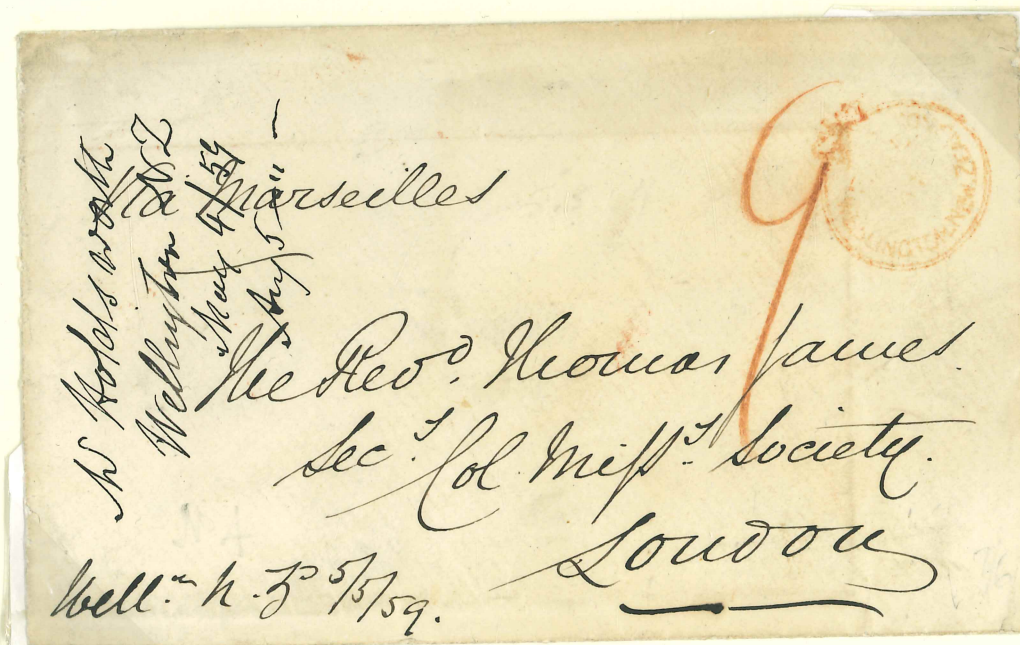 Mr Holdsworth
Wellington NZ
May 4/59
Augt 5 "
Via Marseilles
9
WELLINGTON NEW ZEA
The Revd. Thomas James.
Secy. Col. Missy. Society.
London
Welln. N. Zd 5/5/59.